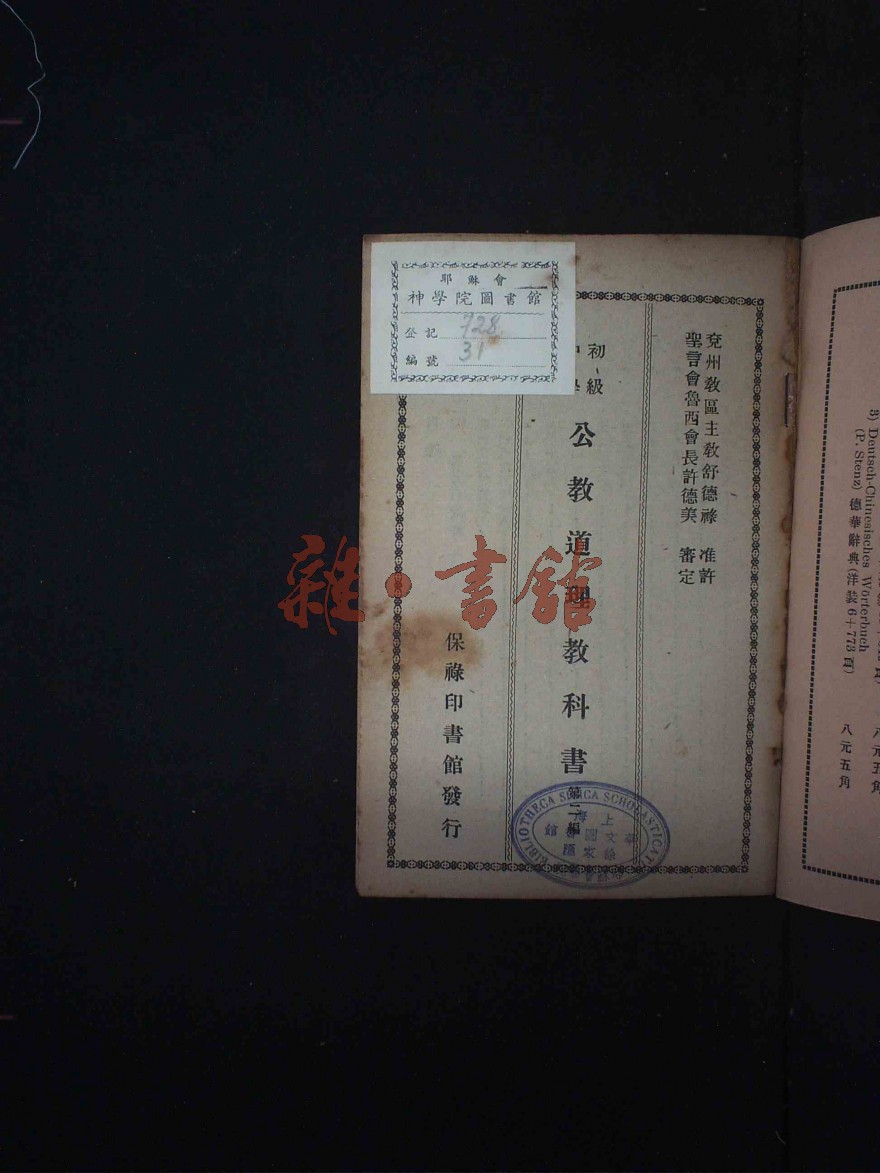 耶穌會
神學院圖書館
登記 728
編號 31
兗州教區主教舒德祿 准許
聖言會魯西會長許德美 審定
初級
中學
公教道理教科書
保祿印書館發行
BIBLIOTHECA SINICA SCHOLASTICAT
上海
雜·書館
3) Deutsch-Chinesisches Wörterbuch
(P. Stenz) 德華辭典(洋裝6+773頁)
八元五角
八元五角